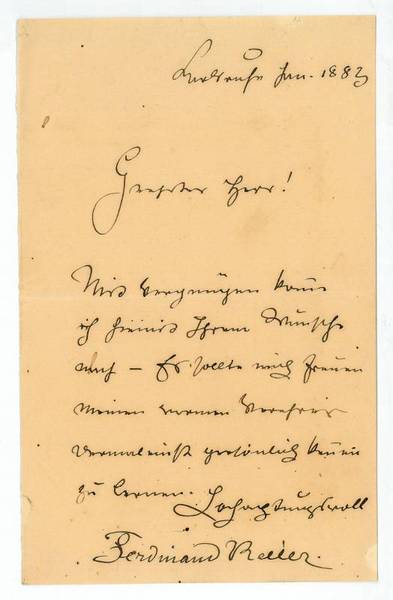 Karlsruhe Jan. 1883
Geehrter Herr!
Mit Vergnügen komme
ich hiemit Ihrem Wunsche
nach — Es sollte mich freuen
meinen warmen Verehrer
dermaleinst persönlich kennen
zu lernen. Hochachtungsvoll
Ferdinand Keller.